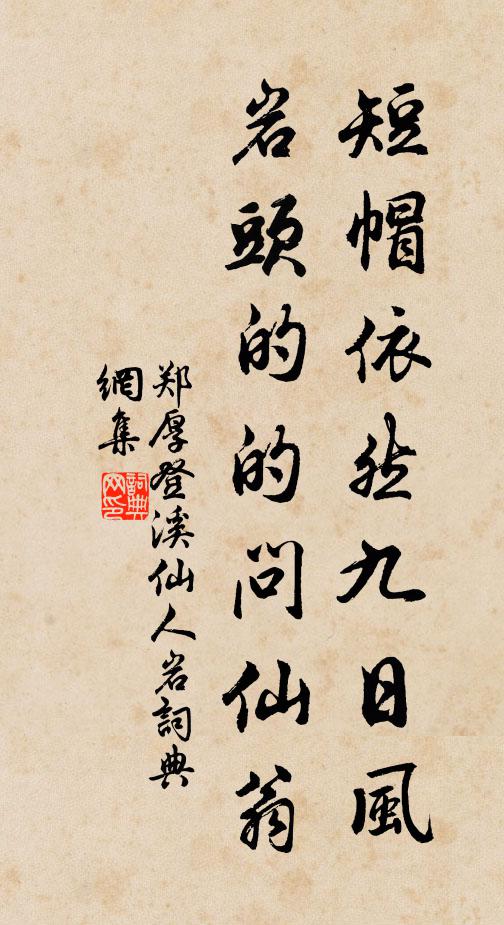 短帽依然九日風
岩頭的的問仙翁
郑厚登溪仙人岩詞典
網集
詞典
网印